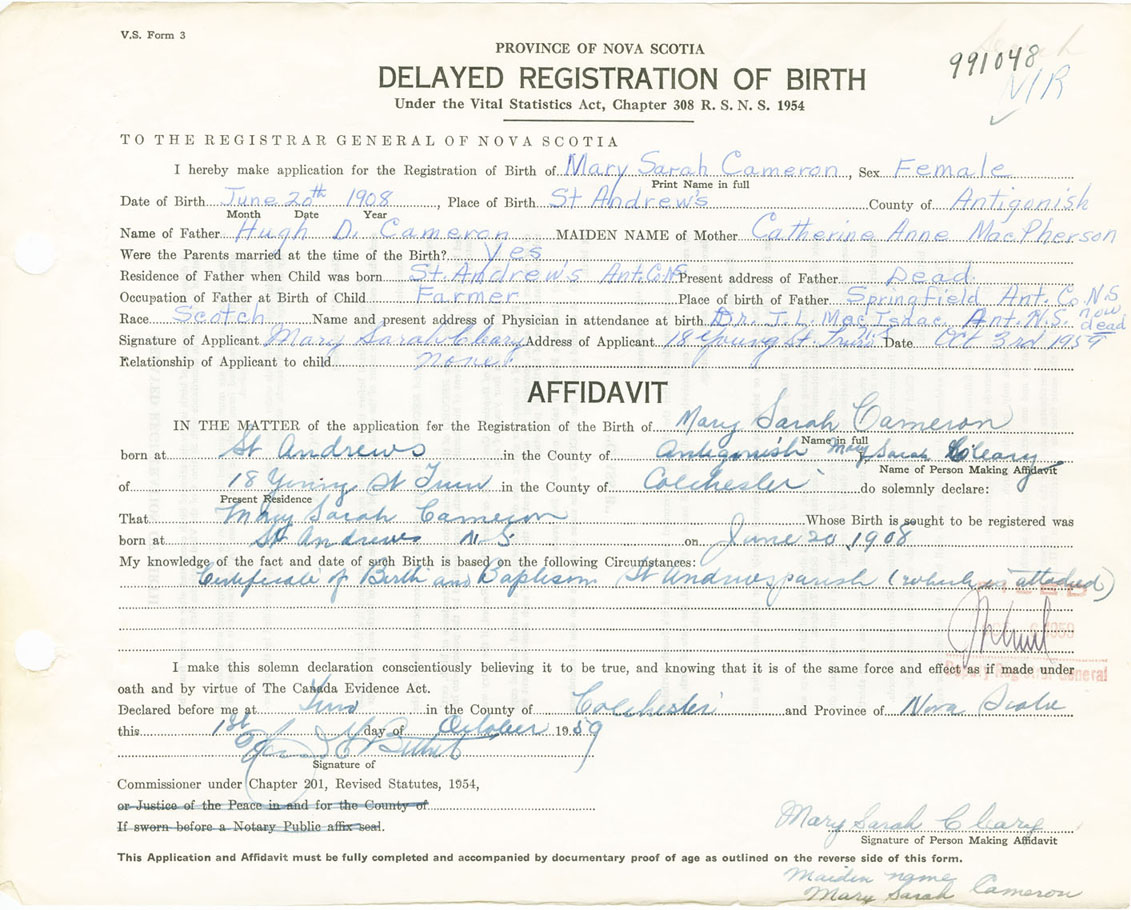 V.S. Form 3
991048
N/R
PROVINCE OF NOVA SCOTIA
DELAYED REGISTRATION OF BIRTH
Under the Vital Statistics Act, Chapter 308 R. S. N. S. 1954
TO THE REGISTRAR GENERAL OF NOVA SCOTIA
I hereby make application for the Registration of Birth of Mary Sarah Cameron, Sex Female
Print Name in full
Date of Birth June 20th 1908, Place of Birth St Andrew's County of Antigonish
Month Date Year
Name of Father Hugh D. Cameron MAIDEN NAME of Mother Catherine Anne MacPherson
Were the Parents married at the time of the Birth? Yes
Residence of Father when Child was born St. Andrew's Ant. Co. N.S. Present address of Father Dead
Occupation of Father at Birth of Child Farmer Place of birth of Father Springfield Ant. Co. N.S.
Race Scotch Name and present address of Physician in attendance at birth Dr. J. L. MacIsaac Ant. N.S. now dead
Signature of Applicant Mary Sarah Cleary Address of Applicant 18 Young St. Truro Date Oct 3rd 1959
Relationship of Applicant to child
AFFIDAVIT
IN THE MATTER of the application for the Registration of the Birth of Mary Sarah Cameron
Name in full
born at St Andrews in the County of Antigonish Mary Sarah Cleary
Name of Person Making Affidavit
of 18 Young St Truro in the County of Colchester do solemnly declare:
Present Residence
That Mary Sarah Cameron Whose Birth is sought to be registered was
born at St Andrews N S on June 20, 1908
My knowledge of the fact and date of such Birth is based on the following Circumstances:
Certificate of Birth and Baptism St Andrews parish (which is attached)
I make this solemn declaration conscientiously believing it to be true, and knowing that it is of the same force and effect as if made under
oath and by virtue of The Canada Evidence Act.
Deputy Registrar General
Declared before me at Truro in the County of Colchester and Province of Nova Scotia
this 1st day of October 1959
Signature of
Commissioner under Chapter 201, Revised Statutes, 1954,
or Justice of the Peace in and for the County of
If sworn before a Notary Public affix seal.
Mary Sarah Cleary
Signature of Person Making Affidavit
This Application and Affidavit must be fully completed and accompanied by documentary proof of age as outlined on the reverse side of this form.
Maiden name
Mary Sarah Cameron